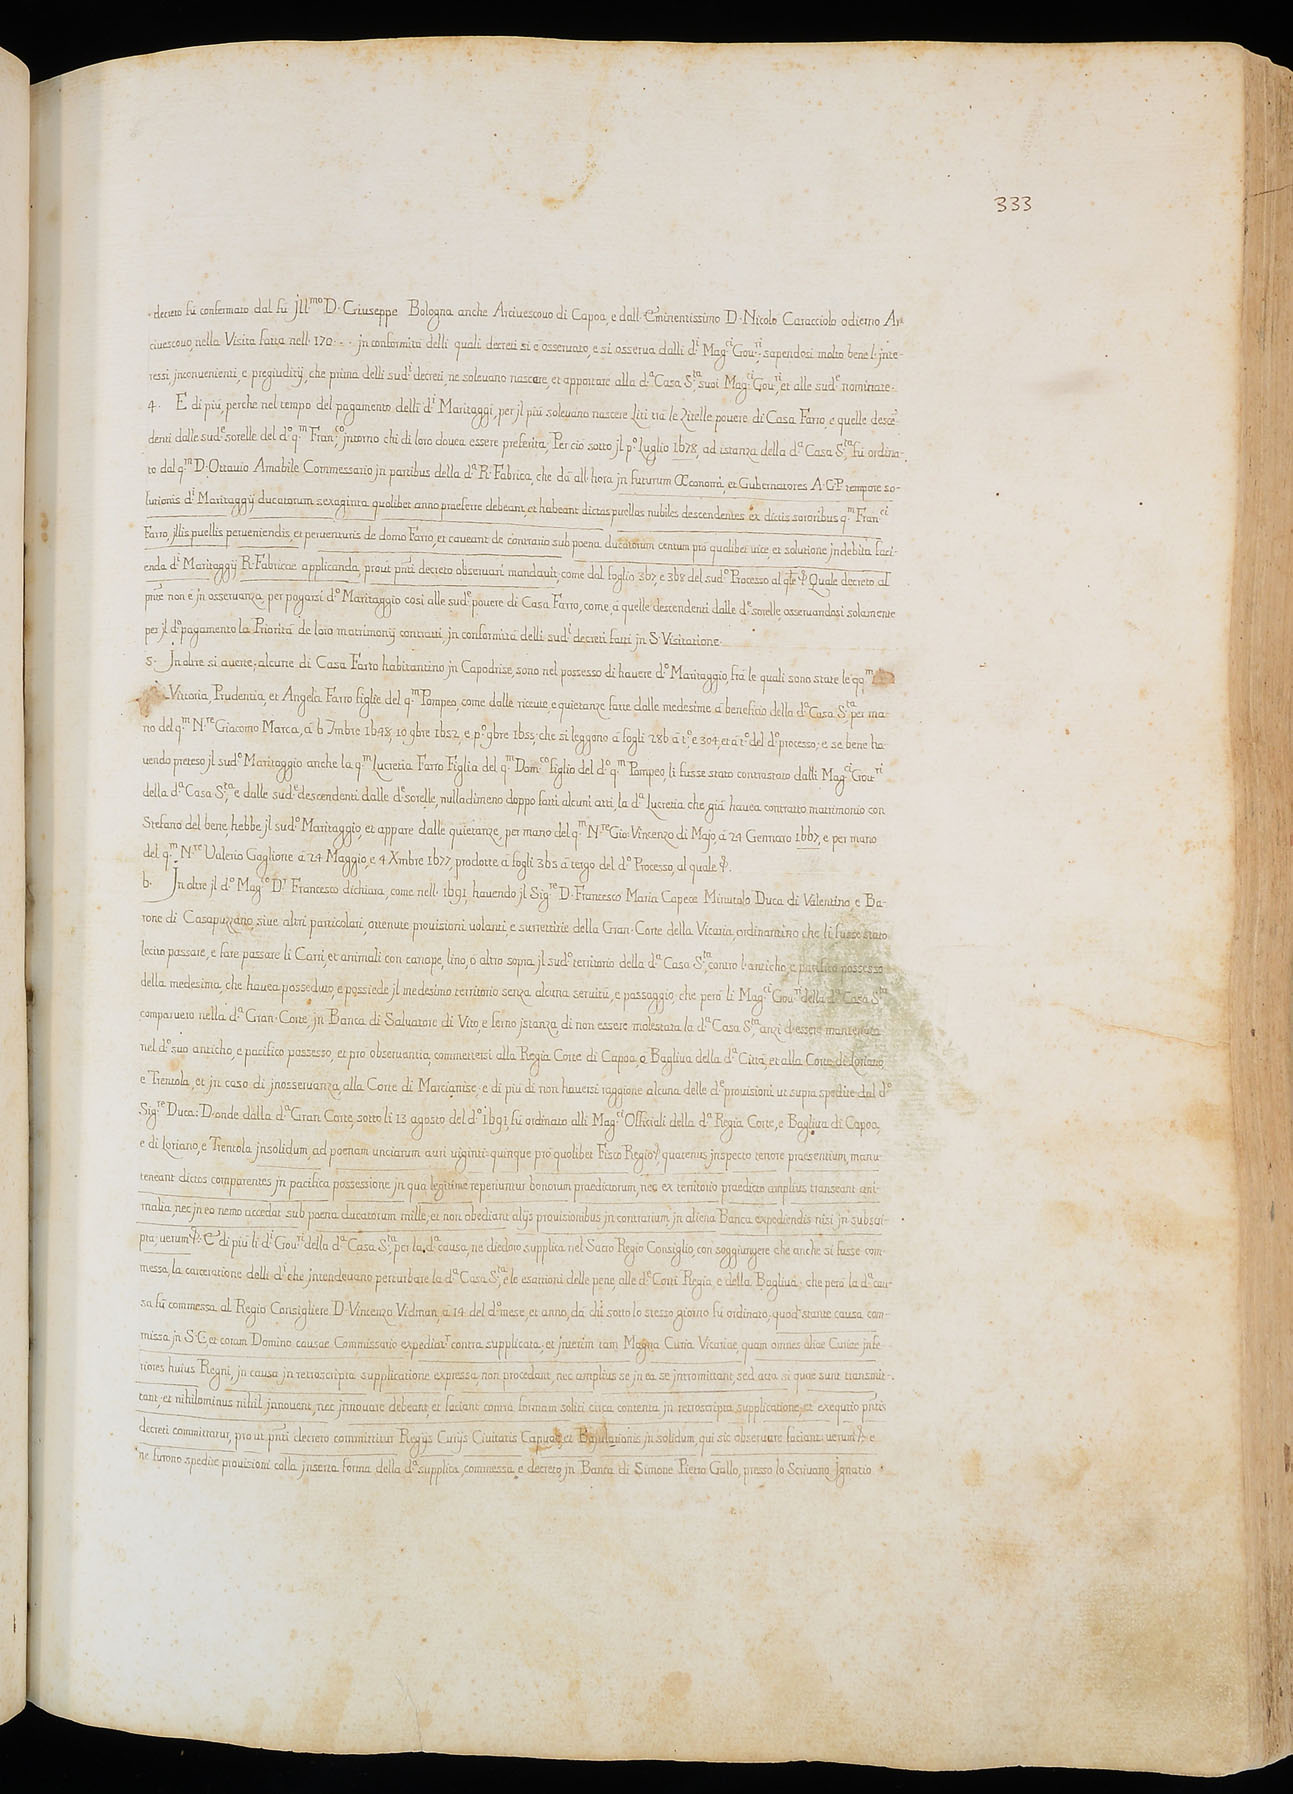 333
decreto fù confermato dal fù Jll.mo D. Giuseppe Bologna anche Arciuescouo di Capoa, e dall. Eminentissimo D. Nicolò Caracciolo odierno Ar
ciuescouo, nella Visita fatta nell. 170 - - jn conformità delli quali decreti si è osseruato, e si osserua dalli d.i Mag.ci Gou.ri; sapendosi molto bene l. jnte-
ressi, jnconuenienti, e pregiuditij, che prima delli sud.i decreti, ne soleuano nascere, et apportare alla d.a Casa S.ta, suoi Mag.ci Gou.ri, et alle sud.e nominate.
4. E di più, perche nel tempo del pagamento delli d.i Maritaggi, per jl più soleuano nascere Liti trà le Zitelle pouere di Casa Farro, e quelle descē
denti dalle sud.e sorelle del d.o q.m Fran.co, jntorno chi di loro douea essere preferita; Perciò sotto jl p.o Luglio 1678, ad istanza della d.a Casa S.ta fù ordina-
to dal q.m D. Ottauio Amabile Commessario jn partibus della d.a R. Fabrica, che dà all. hora jn futurum Œconomi, et Gubernatores A. G. P. tempore so-
lutionis d.i Maritaggij ducatorum sexaginta quolibet anno praeferre debeant, et habeant dictas puellas nubiles descendentes ex dictis sororibus q.m Fran.ci
Farro, jllis puellis perueniendis, et peruenturis de domo Farro, et caueant de contrario sub poena ducatorum centum prò qualibet uice, et solutione jndebita faci-
enda d.i Maritaggij R. Fabricae applicanda, prout pnti decreto obseruari mandauit; come dal foglio 367, e 368 del sud.o Processo al qle. Quale decreto al
pnte non è jn osseruanza, per pagarsi d.o Maritaggio così alle sud.e pouere di Casa Farro, come à quelle descendenti dalle d.e sorelle, osseruandosi solamente
per jl d.o pagamento la Priorità de loro matrimonij contratti, jn conformità delli sud.i decreti fatti jn S. Visitatione.
5. Jn oltre si auerte, alcune di Casa Farro habitantino jn Capodrise, sono nel possesso di hauere d.o Maritaggio, frà le quali sono state le qq.m
Vittoria, Prudentia, et Angela Farro figlie del q.m Pompeo, come dalle riceute, e quietanze fatte dalle medesime à beneficio della d.a Casa S.ta, per ma-
no del q.m N.re Giacomo Marca, à 6 7mbre 1648, 10 9bre 1652, e p.o 9bre 1655, che si leggono à fogli 286 à t.o e 304, et à t.o del d.o processo; e se bene ha-
uendo preteso jl sud.o Maritaggio anche la q.m Lucretia Farro Figlia del q.m Dom.co figlio del d.o q.m Pompeo, li fusse stato contrastato dalli Mag.ci Gou.ri
della d.a Casa S.ta, e dalle sud.e descendenti dalle d.e sorelle, nulladimeno doppo fatti alcuni atti, la d.a Lucretia che già hauea contratto matrimonio con
Stefano del bene, hebbe jl sud.o Maritaggio, et appare dalle quietanze, per mano del q.m N.re Gio: Vincenzo di Majo, à 24 Gennaro 1667, e per mano
del q.m N.re Valerio Gaglione à 24 Maggio, e 4 Xmbre 1677, prodotte à fogli 365 à tergo del d.o Processo, al quale.
6. Jn oltre jl d.o Mag.co D.r Francesco dichiara, come nell. 1691, hauendo jl Sig.re D. Francesco Maria Capece Minutolo Duca di Valentino, e Ba-
rone di Casapuzzano, siue altri particolari, ottenute prouisioni uolanti, e surrettitie della Gran-Corte della Vicaria, ordinantino che li fusse stato
lecito passare, e fare passare li Carri, et animali con canape, lino, ò altro sopra jl sud.o territorio della d.a Casa S.ta, contro l. anticho, e pacifico possesso
della medesima, che hauea posseduto, e possiede jl medesimo territorio senza alcuna seruitù, e passaggio, che però li Mag.ci Gou.ri della d.a Casa S.ta
comparuero nella d.a Gran-Corte, jn Banca di Saluatore di Vito, e ferno jstanza, di non essere molestata la d.a Casa S.ta, anzi d. essere mantenuta
nel d.o suo anticho, e pacifico possesso, et pro obseruantia, commettersi alla Regia Corte di Capoa, ò Bagliua della d.a Città, et alla Corte di Loriano,
e Trentola, et jn caso di jnosseruanza, alla Corte di Marcianise, e di più di non hauersi raggione alcuna delle d.e prouisioni ut supra spedite dal d.o
Sig.re Duca: D. onde dalla d.a Gran Corte, sotto li 13 agosto del d.o 1691, fù ordinato alli Mag.ci Officiali della d.a Regia Corte, e Bagliua di Capoa,
e di Loriano, e Trentola jnsolidum, ad poenam unciarum auri uiginti-quinque prò quolibet Fisco Regio, quatenus jnspecto tenore praesentium, manu-
teneant dictos comparentes jn pacifica possessione jn qua legitime reperiuntur bonorum praedictorum, nec ex territorio praedicto amplius transeant ani-
malia, nec jn eo nemo accedat sub poena ducatorum mille, et non obediant alijs prouisionibus jn contrarium, jn aliena Banca expediendis nisi jn subscri-
pta, uerum. E di più li d.i Gou.ri della d.a Casa S.ta, per la d.a causa, ne diedero supplica nel Sacro Regio Consiglio, con soggiungere che anche si fusse com-
messa, la carceratione delli d.i che jntendeuano perturbare la d.a Casa S.ta, e le esattioni delle pene, alle d.e Corti Regia, e della Bagliua; che però la d.a cau-
sa fù commessa, al Regio Consigliere D. Vincenzo Vidman, à 14 del d.o mese, et anno, dà chi sotto lo stesso giorno fù ordinato, quod stante causa com-
missa jn S. C. et coram Domino causae Commissario expediat.r contra supplicata, et jnterim tam Magna Curia Vicariae, quam omnes aliae Curiae jnfe-
riores huius Regni, jn causa jn retroscripta supplicatione expressa, non procedant, nec amplius se jn ea se jntromittant, sed acta si quae sunt transmit-
tant, et nihilominus nihil jnnouent, nec jnnouare debeant, et faciant contra formam soliti circa contenta jn retroscripta supplicatione, et exequtio pntis
decreti committatur, prout pnti decreto committitur Regijs Curijs Ciuitatis Capuae, et Baiulationis jn solidum, qui sic obseruare faciant: uerum: e
ne furono spedite prouisioni colla jnserta forma della d.a supplica, commessa, e decreto, jn Banca di Simone Pietro Gallo, presso lo Scriuano Jgnatio